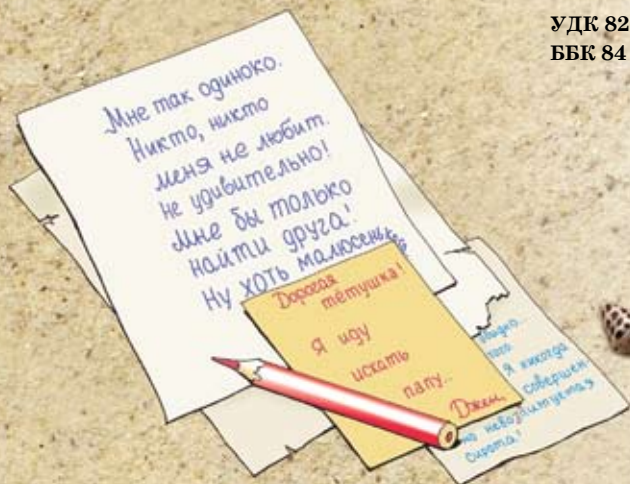 УДК 82
ББК 84
Мне так одиноко.
Никто, никто
меня не любит.
Не удивительно!
Мне бы только
найти друга!
Ну хоть малюсенького
Дорогая
тётушка!
Я иду
искать
папу..
Джен.
Я никогда
совершен
но
сирота!